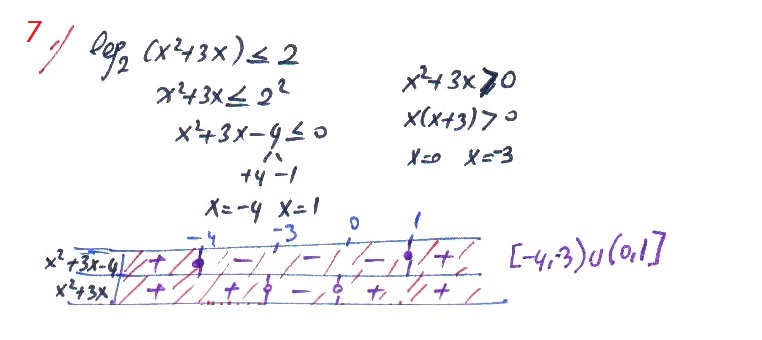 7)
log₂ (x²+3x) ≤ 2
x²+3x ≤ 2²
x²+3x-4 ≤ 0
+4 -1
x=-4 x=1
x²+3x>0
x(x+3)>0
x=0 x=-3
-4 -3 0 1
x²+3x-4 + - - - +
x²+3x + + - + +
[-4,-3)∪(0,1]